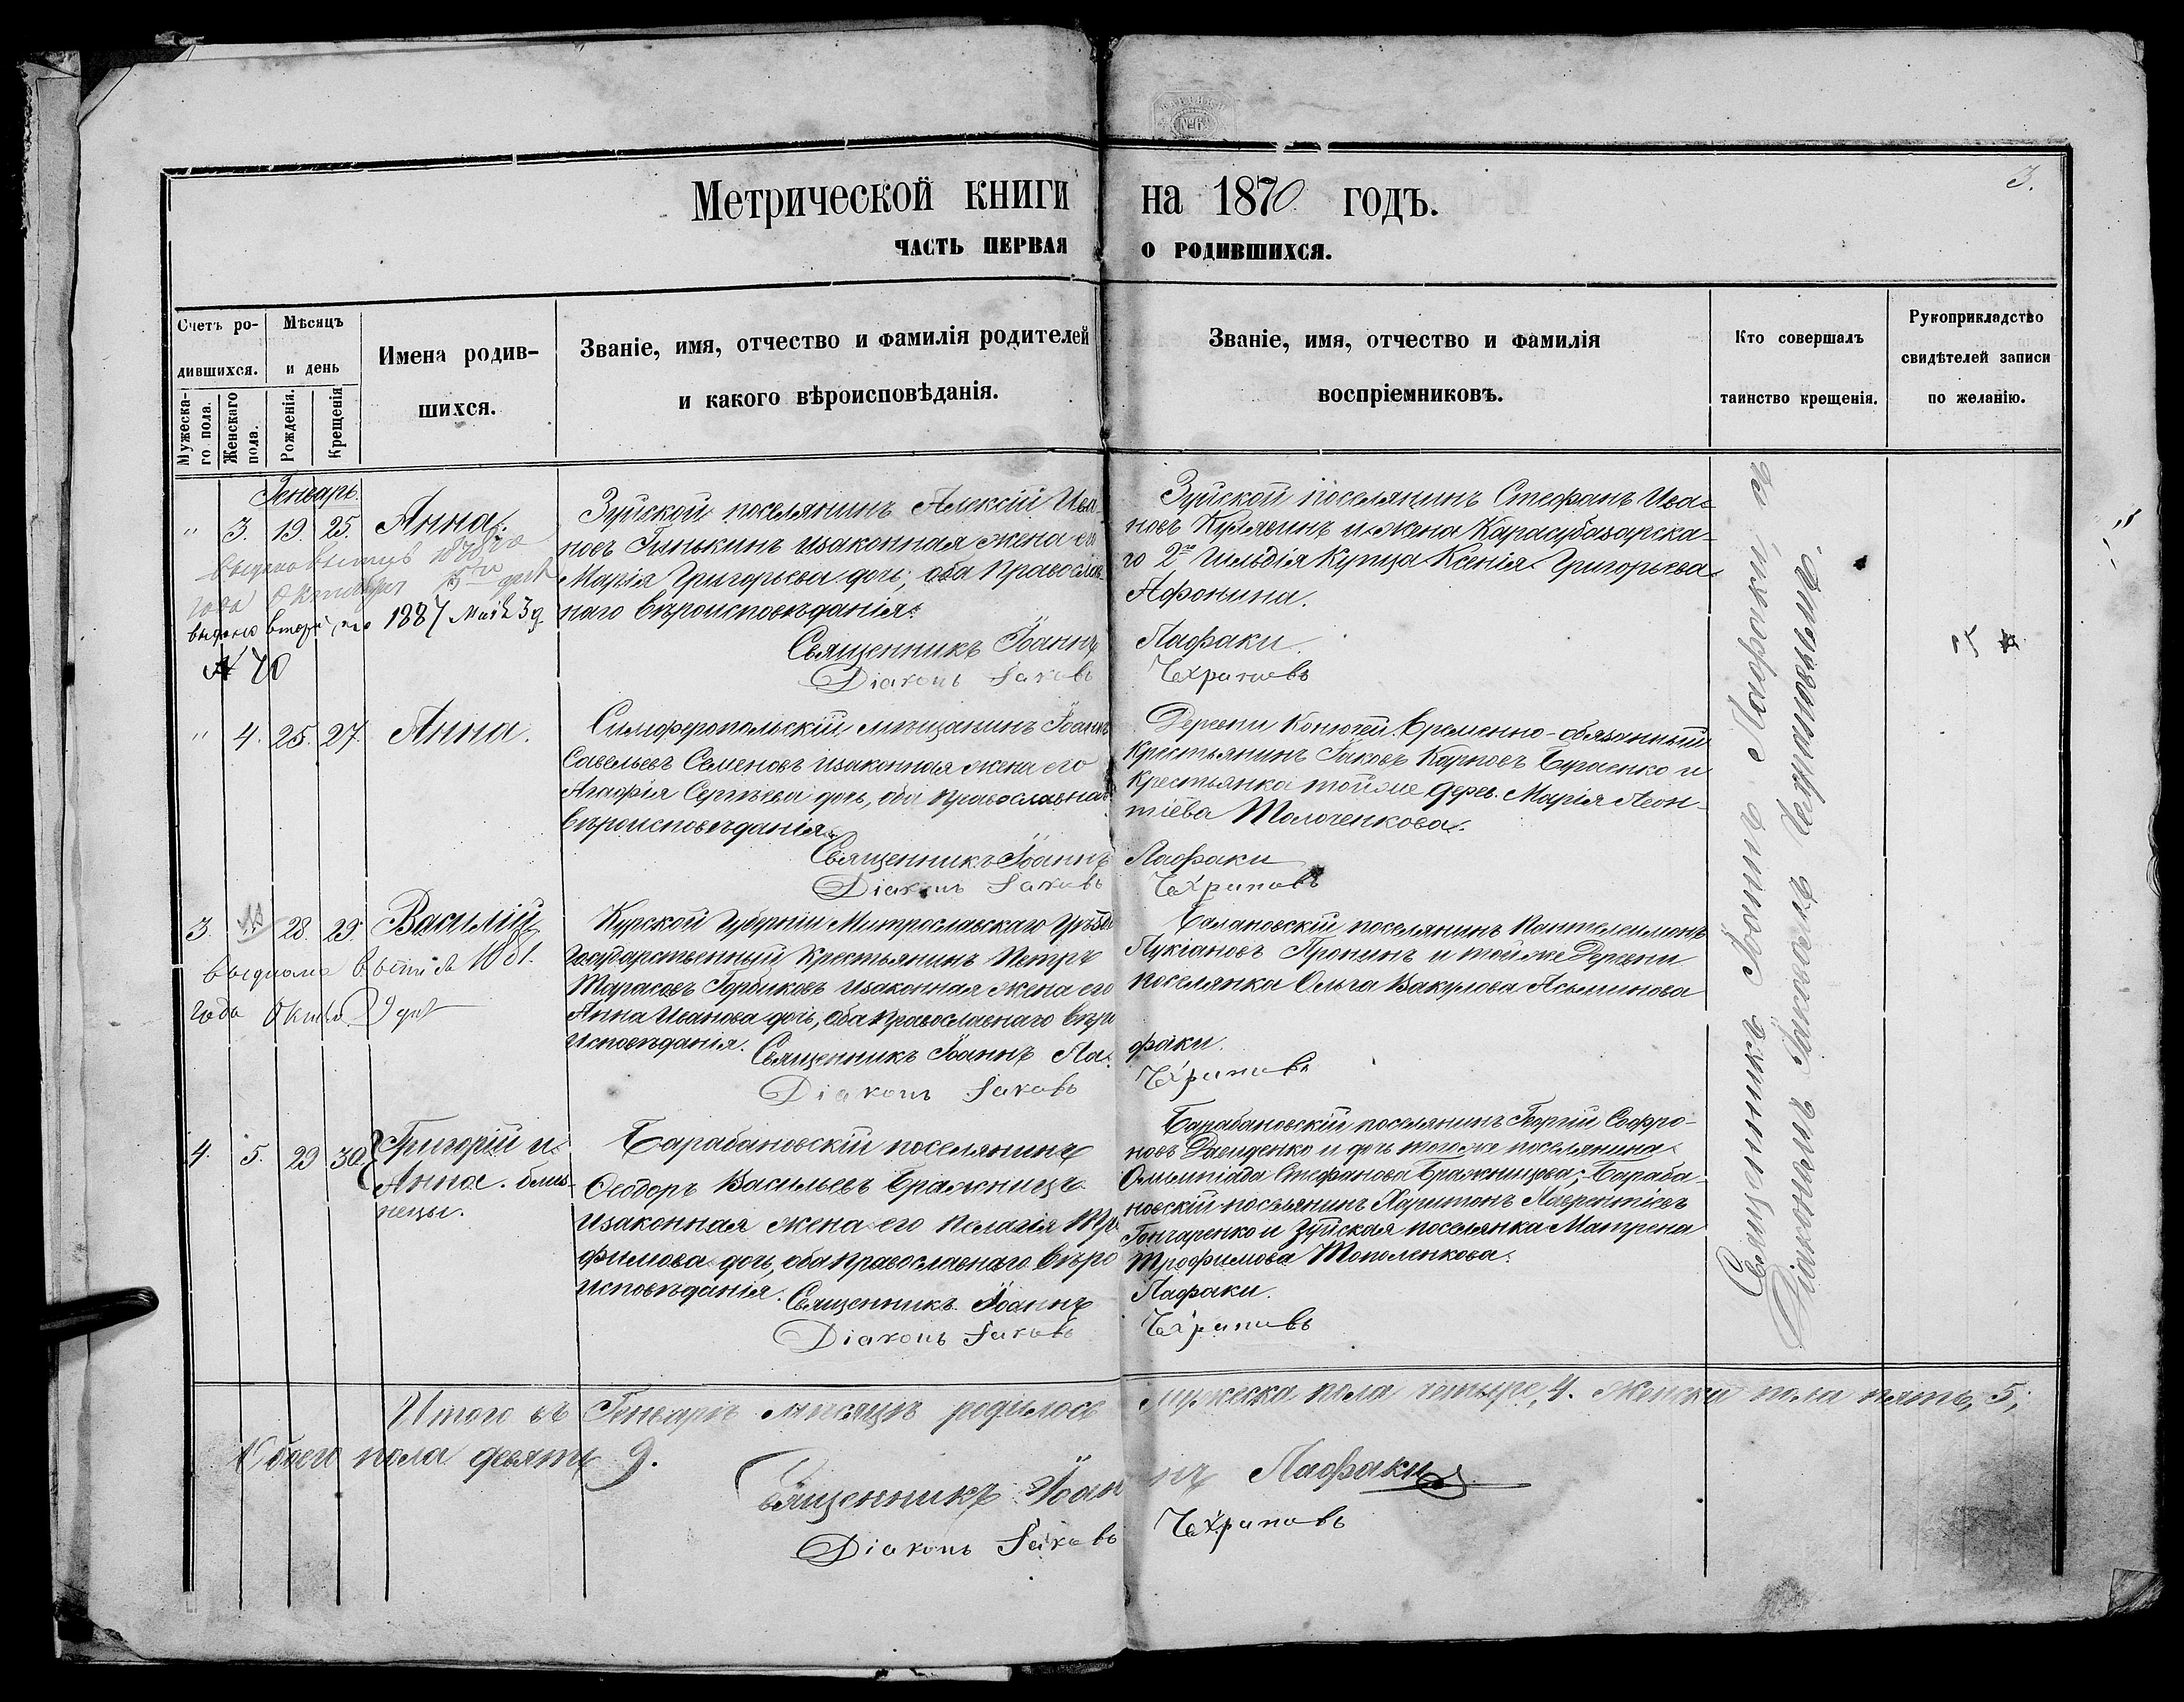 Метрической книги на 1870 годъ.
3.
ЧАСТЬ ПЕРВАЯ О РОДИВШИХСЯ.
Счетъ ро-
дившихся.
Мужеска-
го пола.
Женскаго
пола.
Мѣсяцъ
и день
Рожденія.
Крещенія
Имена родив-
шихся.
Званіе, имя, отчество и фамилія родителей
и какого вѣроисповѣданія.
Званіе, имя, отчество и фамилія
воспріемниковъ.
Кто совершалъ
таинство крещенія.
Рукоприкладство
свидѣтелей записи
по желанію.
Генварь.
" 3. 19. 25. Анна.
1887 Май 3 д.
№ 70
Зуйской поселянинъ Алексій Ива-
новъ Гунькинъ изаконная жена его
Марія Григорьева дочь, оба Православ-
наго вѣроисповѣданія.
Священникъ Іоаннъ Лафаки.
Діаконъ Іаковъ
Зуйской поселянинъ Стефанъ Ива-
новъ и жена Карасубазарска-
го 2й Гильдія Купца Ксенія Григорьева
Афонина.
" 4. 25. 27. Анна.
Симферопольскій мѣщанинъ Іоаннъ
Савельевъ Семеновъ изаконная жена его
Агафія Сергѣева дочь, оба Православнаго
вѣроисповѣданія.
Священникъ Іоаннъ Лафаки
Діаконъ Іаковъ
Деревни временно-обязанный
крестьянинъ Іаковъ Карповъ Бураенко и
крестьянка тойже дерев. Марія Леон-
тіева Толоченкова.
3. 28. 29. Василій
выдана 1881.
года Октяб. 9 дня
Курской Губерніи
Государственный Крестьянинъ Петръ
Тарасовъ Горбиковъ изаконная жена его
Анна Иванова дочь, оба Православнаго вѣро
исповѣданія. Священникъ Іоаннъ Лафаки.
Діаконъ Іаковъ
поселянинъ Пантелеимонъ
Лукіановъ Пронинъ и тойже Деревни
поселянка Ольга Вакулова
4. 5. 29 30. Григорій и
Анна. близ-
нецы.
Барабановскій поселянинъ
Ѳеодоръ Васильевъ Бражницъ
изаконная жена его Пелагія Тро
фимова дочь, оба Православнаго вѣро
исповѣданія. Священникъ Іоаннъ Лафаки.
Діаконъ Іаковъ
Барабановскій поселянинъ Георгій Софро-
новъ Давиденко и дочь тогоже поселянина
Олимпіада Стефанова Бражницова; Бараба-
новскій поселянинъ Харитонъ Лаврентіевъ
Гончаренко и Зуйская поселянка Матрена
Трофимова Тополенкова.
Священникъ Іоаннъ Лафаки, съ
Діакономъ Іаковомъ
Итого въ Генварѣ мѣсяцѣ родилось мужеска пола четыре, 4. женска пола пять, 5,
Обоего пола девять 9.
Священникъ Іоаннъ Лафаки
Діаконъ Іаковъ